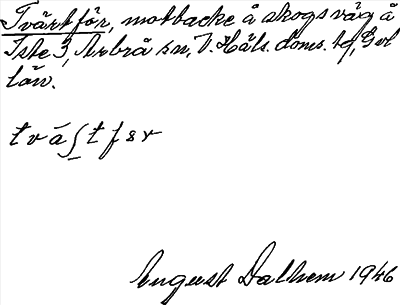 Tvärtför, motbacke å skogsväg å
Iste 3, Arbrå sn, V. Häls. doms. tg, Gvl
län.
tvä∫tfər
August Dalhem 1946